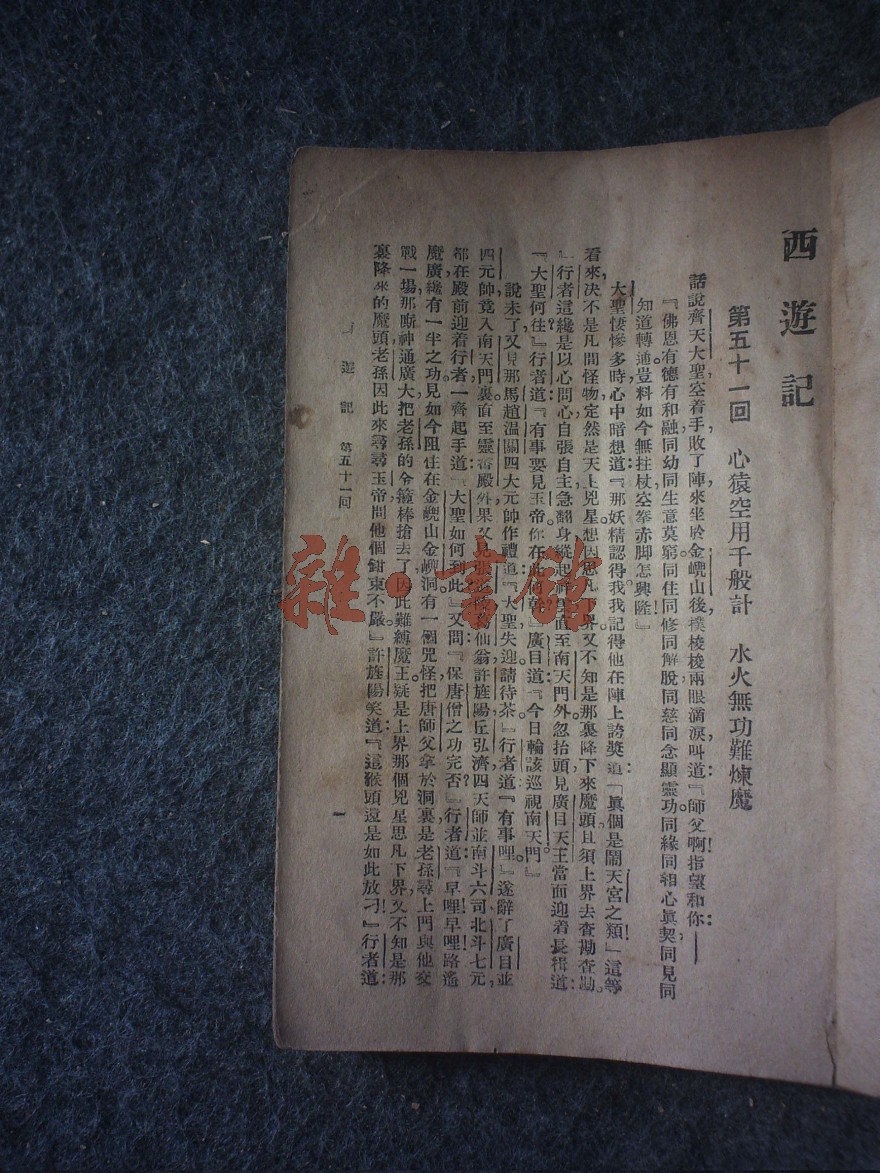 西遊記
第五十一回 心猿空用千般計 水火無功難煉魔
話說齊天大聖空着手敗了陣，來坐於金㠋山後，撲梭梭兩眼滴淚，叫道：『師父啊！指望和你：——
『佛恩有德有和融，同幼同生意莫窮。同住同修同解脫，同慈同念顯靈功。同緣同相心眞契，同見同
知道轉通。豈料如今無拄杖，空拳赤脚怎興隆！』
大聖悽慘多時，心中暗想道：『那妖精認得我。我記得他在陣上誇獎道：「眞個是鬧天宮之類！」這等
看來，決不是凡間怪物，定然是天上兇星。想因思凡下界，又不知是那裏降下來魔頭，且須上界去查勘查勘。
』行者這纔是以心問心，自張自主，急翻身縱起祥雲，直至南天門外。忽抬頭見廣目天王，當面迎着長揖道：
『大聖何往？』行者道：『有事要見玉帝。你在此何幹？』廣目道：『今日輪該巡視南天門。』
說未了，又見那馬趙溫關四大元帥作禮道：『大聖，失迎。請待茶。』行者道：『有事哩。』遂辭了廣目並
四元帥，竟入南天門裏。直至靈霄殿外，果又見張道陵葛仙翁許旌陽丘弘濟四天師並南斗六司北斗七元，
都在殿前迎着行者，一齊起手道：『大聖如何到此？』又問：『保唐僧之功完否？』行者道：『早哩！早哩！路遙
魔廣，纔有一半之功。見如今阻住在金㠋山金㠋洞。有一個兕怪，把唐師父拿於洞裏，是老孫尋上門與他交
戰一場，那厮神通廣大，把老孫的金箍棒搶去了，因此難縛魔王。疑是上界那個兇星思凡下界，又不知是那
裏降來的魔頭，老孫因此來尋尋玉帝，問他個鉗束不嚴。』許旌陽笑道：『這猴頭還是如此放刁！』行者道：
遊記 第五十一回 一
雜·書館